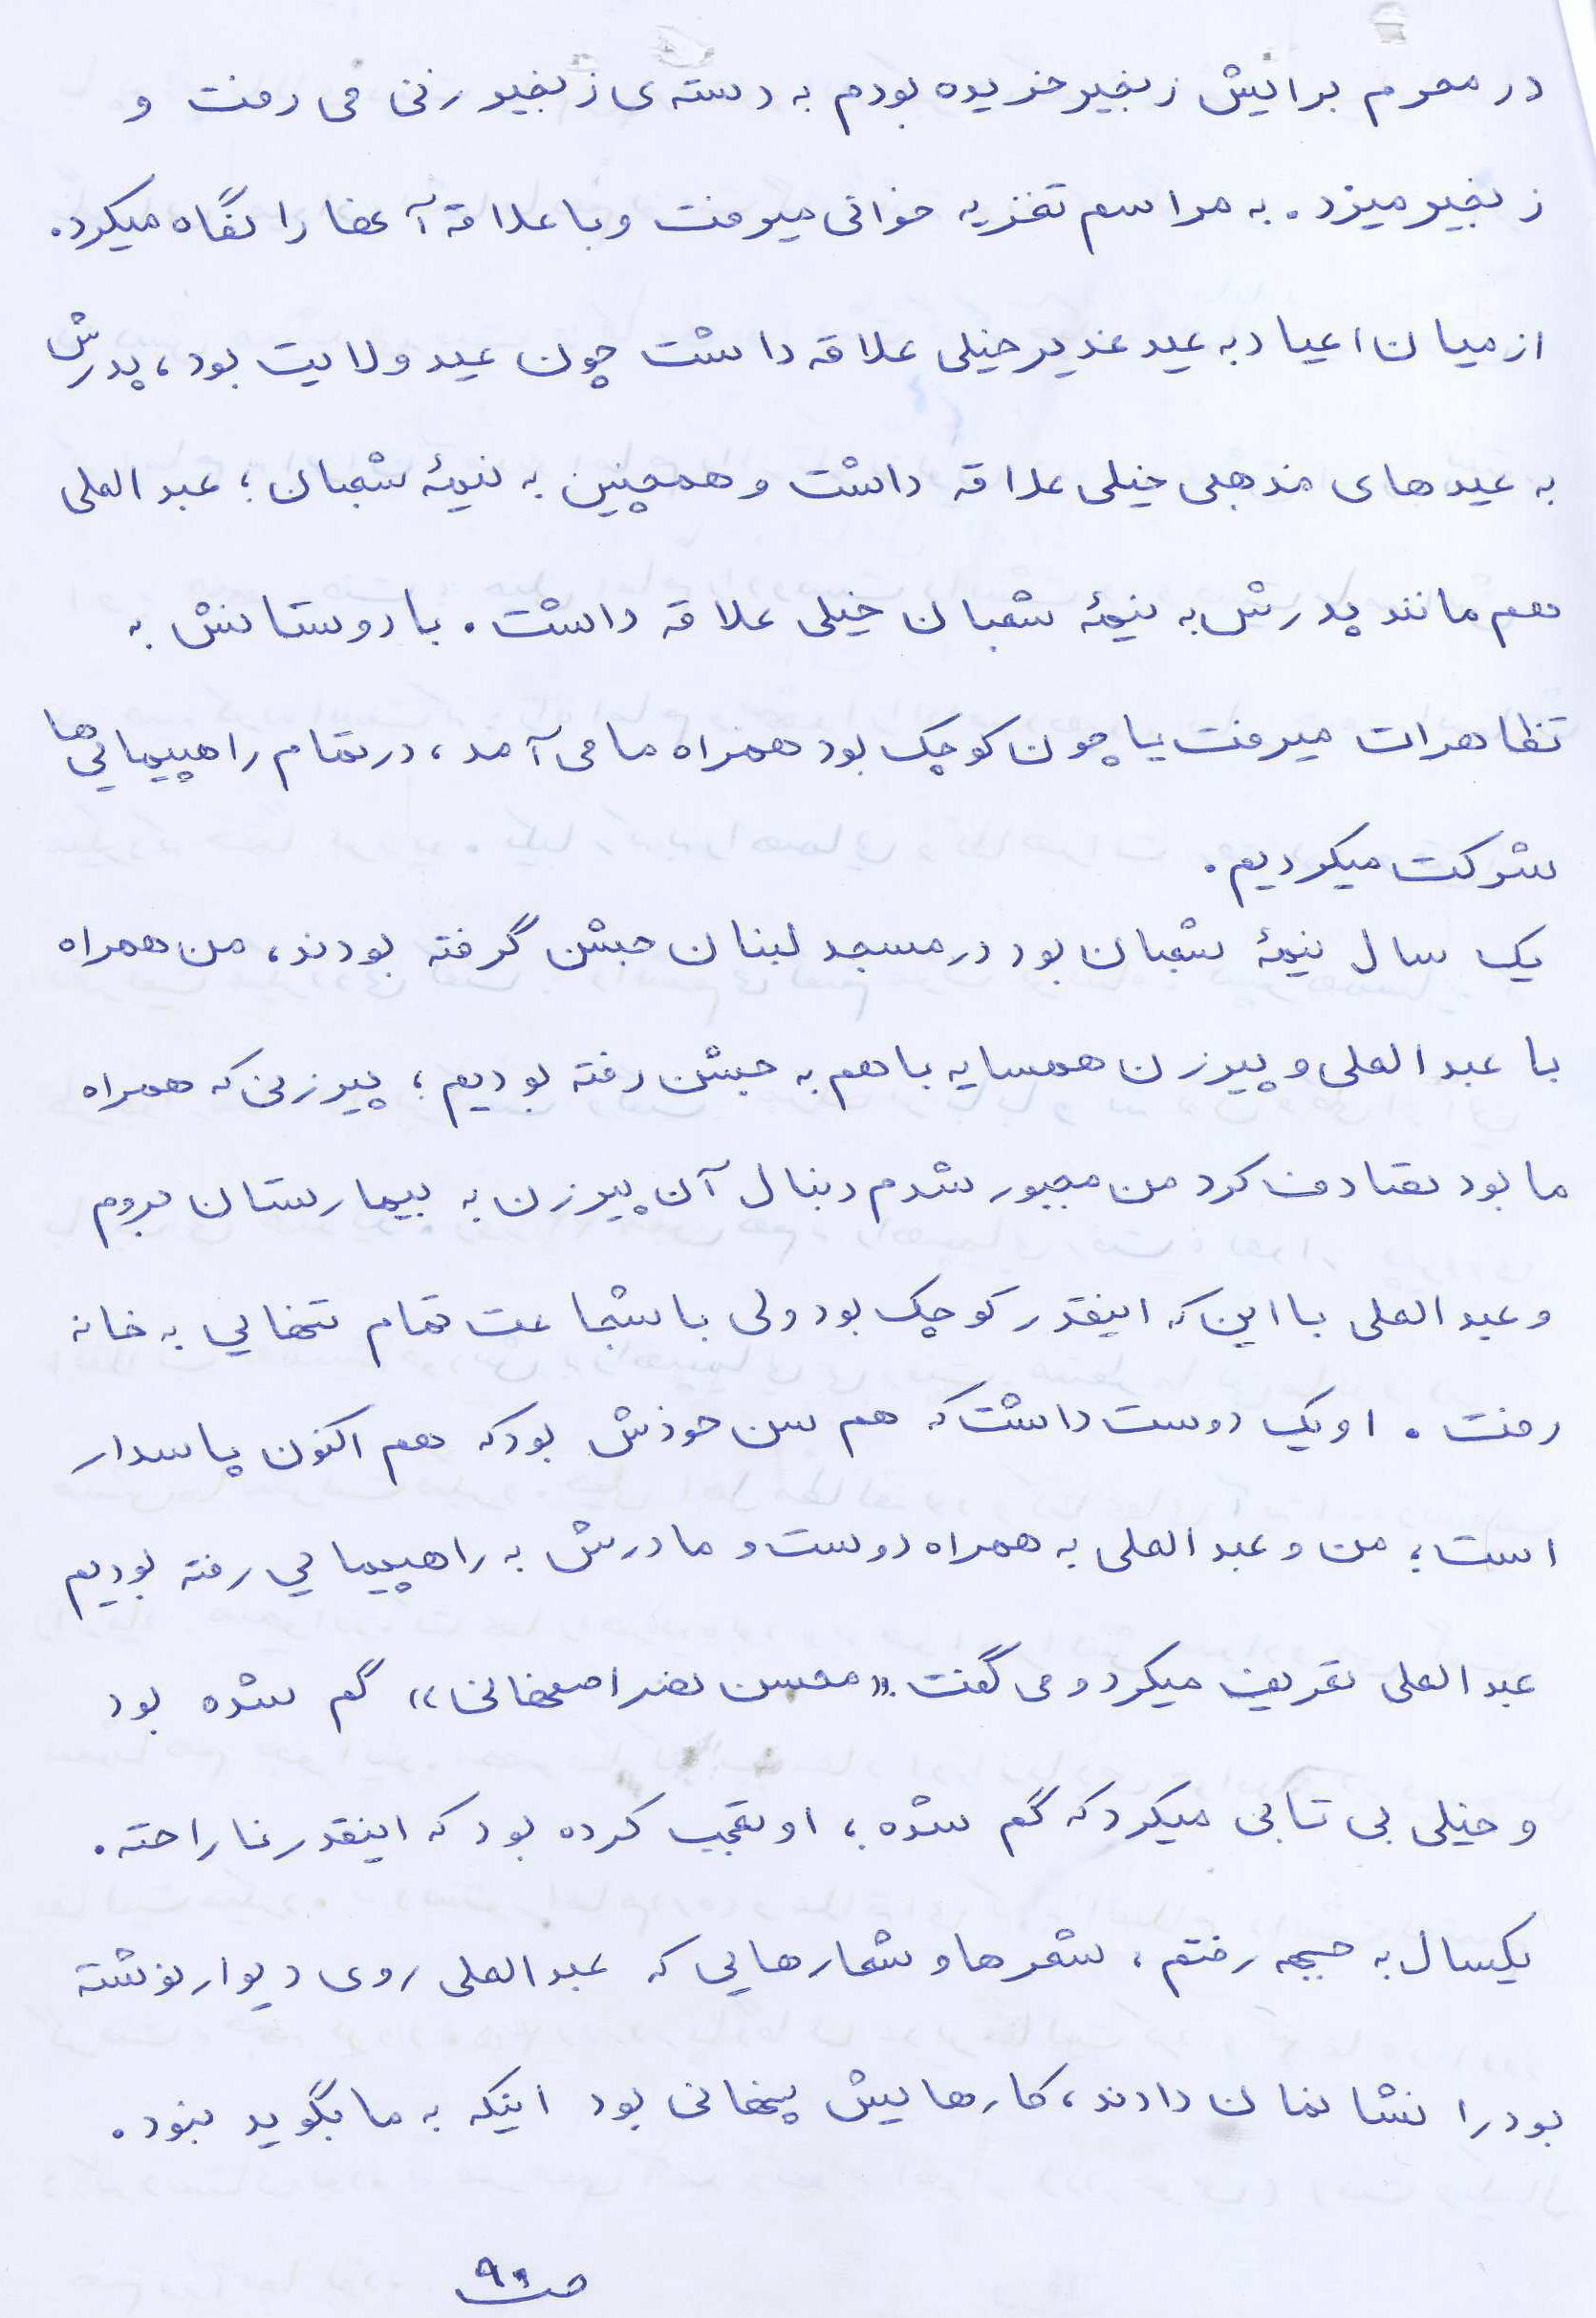 در محرم برایش زنجیر خریده بودم به دسته‌ی زنجیر زنی می رفت و
زنجیر میزد. به مراسم تعزیه خوانی میرفت و با علاقه آنها را نگاه میکرد.
از میان اعیاد به عید غدیر خیلی علاقه داشت چون عید ولایت بود، پدرش
به عیدهای مذهبی خیلی علاقه داشت و همچنین به نیمهٔ شعبان؛ عبدالعلی
هم مانند پدرش به نیمهٔ شعبان خیلی علاقه داشت. با دوستانش به
تظاهرات میرفت یا چون کوچک بود همراه ما می آمد، در تمام راهپیمائی ها
شرکت میکردیم.
یک سال نیمهٔ شعبان بود در مسجد لبنان جشن گرفته بودند، من همراه
با عبدالعلی و پیرزن همسایه باهم به جشن رفته بودیم؛ پیرزنی که همراه
ما بود تصادف کرد من مجبور شدم دنبال آن پیرزن به بیمارستان بروم
و عبدالعلی با این که اینقدر کوچک بود ولی با شجاعت تمام تنهایی به خانه
رفت. او یک دوست داشت که هم سن خودش بود که هم اکنون پاسدار
است؛ من و عبدالعلی به همراه دوست و مادرش به راهپیمایی رفته بودیم
عبدالعلی تعریف میکرد و می گفت «محسن نصر اصفهانی» گم شده بود
و خیلی بی تابی میکرد که گم شده؛ او تعجب کرده بود که اینقدر ناراحته.
یکسال به جبهه رفتم، شعرها و شعارهایی که عبدالعلی روی دیوار نوشته
بود را نشانمان دادند، کارهایش پنهانی بود اینکه به ما بگوید نبود.